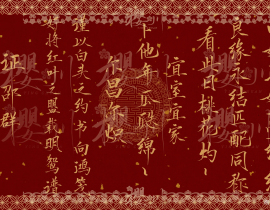 良缘永结匹配同称
看此日桃花灼灼
宜室宜家
卜他年瓜瓞绵绵
尔昌尔炽
谨以白头之约书向鸿笺
好将红叶之盟载明鸳谱
证
群